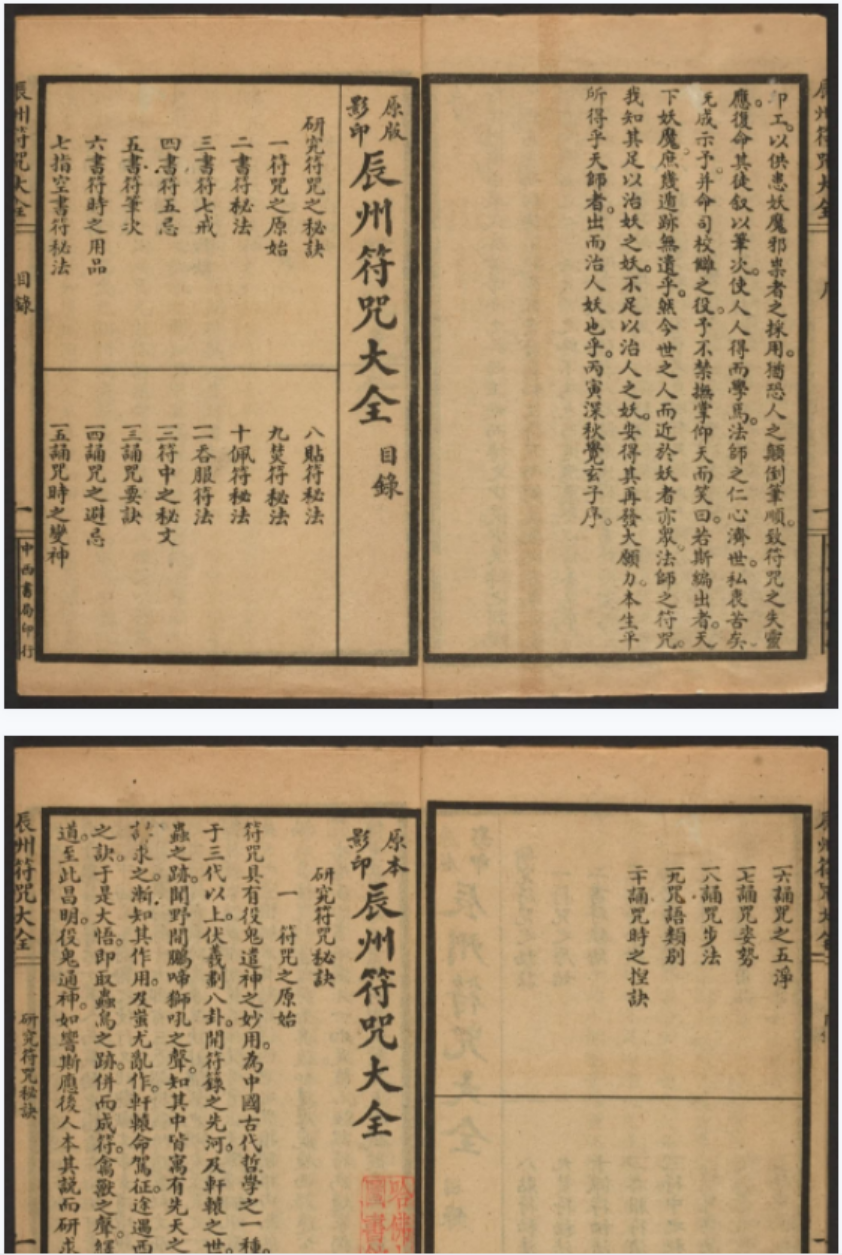 印工。以供患妖魔邪祟者之採用。猶恐人之顛倒筆順。致符咒之失靈
應。復命其徒叙以筆次。使人人得而學焉。法師之仁心濟世。私衷苦矣。
既成示予。并命司校讎之役。予不禁撫掌仰天而笑曰。若斯編出者。天
下妖魔。庶幾遁跡無遺乎。然今世之人而近於妖者亦眾。法師之符咒。
我知其足以治妖之妖。不足以治人之妖。安得其再發大願力。本生平
所得乎天師者。出而治人妖也乎。丙寅深秋覺玄子序。
辰州符咒大全
序
原版
影印
辰州符咒大全 目錄
研究符咒之秘訣
一符咒之原始
二書符秘法
三書符七戒
四書符五忌
五書符筆次
六書符時之用品
七指空書符秘法
八貼符秘法
九焚符秘法
十佩符秘法
一一吞服符法
一二符中之秘文
一三誦咒要訣
一四誦咒之避忌
一五誦咒時之變神
辰州符咒大全
目錄
一
中西書局印行
一六誦咒之五淨
一七誦咒姿勢
一八誦咒步法
一九咒語類別
二十誦咒時之捏訣
辰州符咒大全
原本
影印
辰州符咒大全
研究符咒秘訣
一 符咒之原始
符咒具有役鬼遣神之妙用。為中國古代哲學之一種。
于三代以上。伏羲劃八卦。開符籙之先河。及軒轅之世。
蟲之跡。聞野間鵬啼獅吼之聲。知其中皆寓有先天之
求之。漸知其作用。及蚩尤亂作。軒轅命駕征。途遇西
之訣。于是大悟。即取蟲鳥之跡。併而成符。禽獸之聲。
道至此昌明。役鬼通神。如響斯應。後人本其說而研求
辰州符咒大全
研究符咒秘訣
一
哈佛
圖書